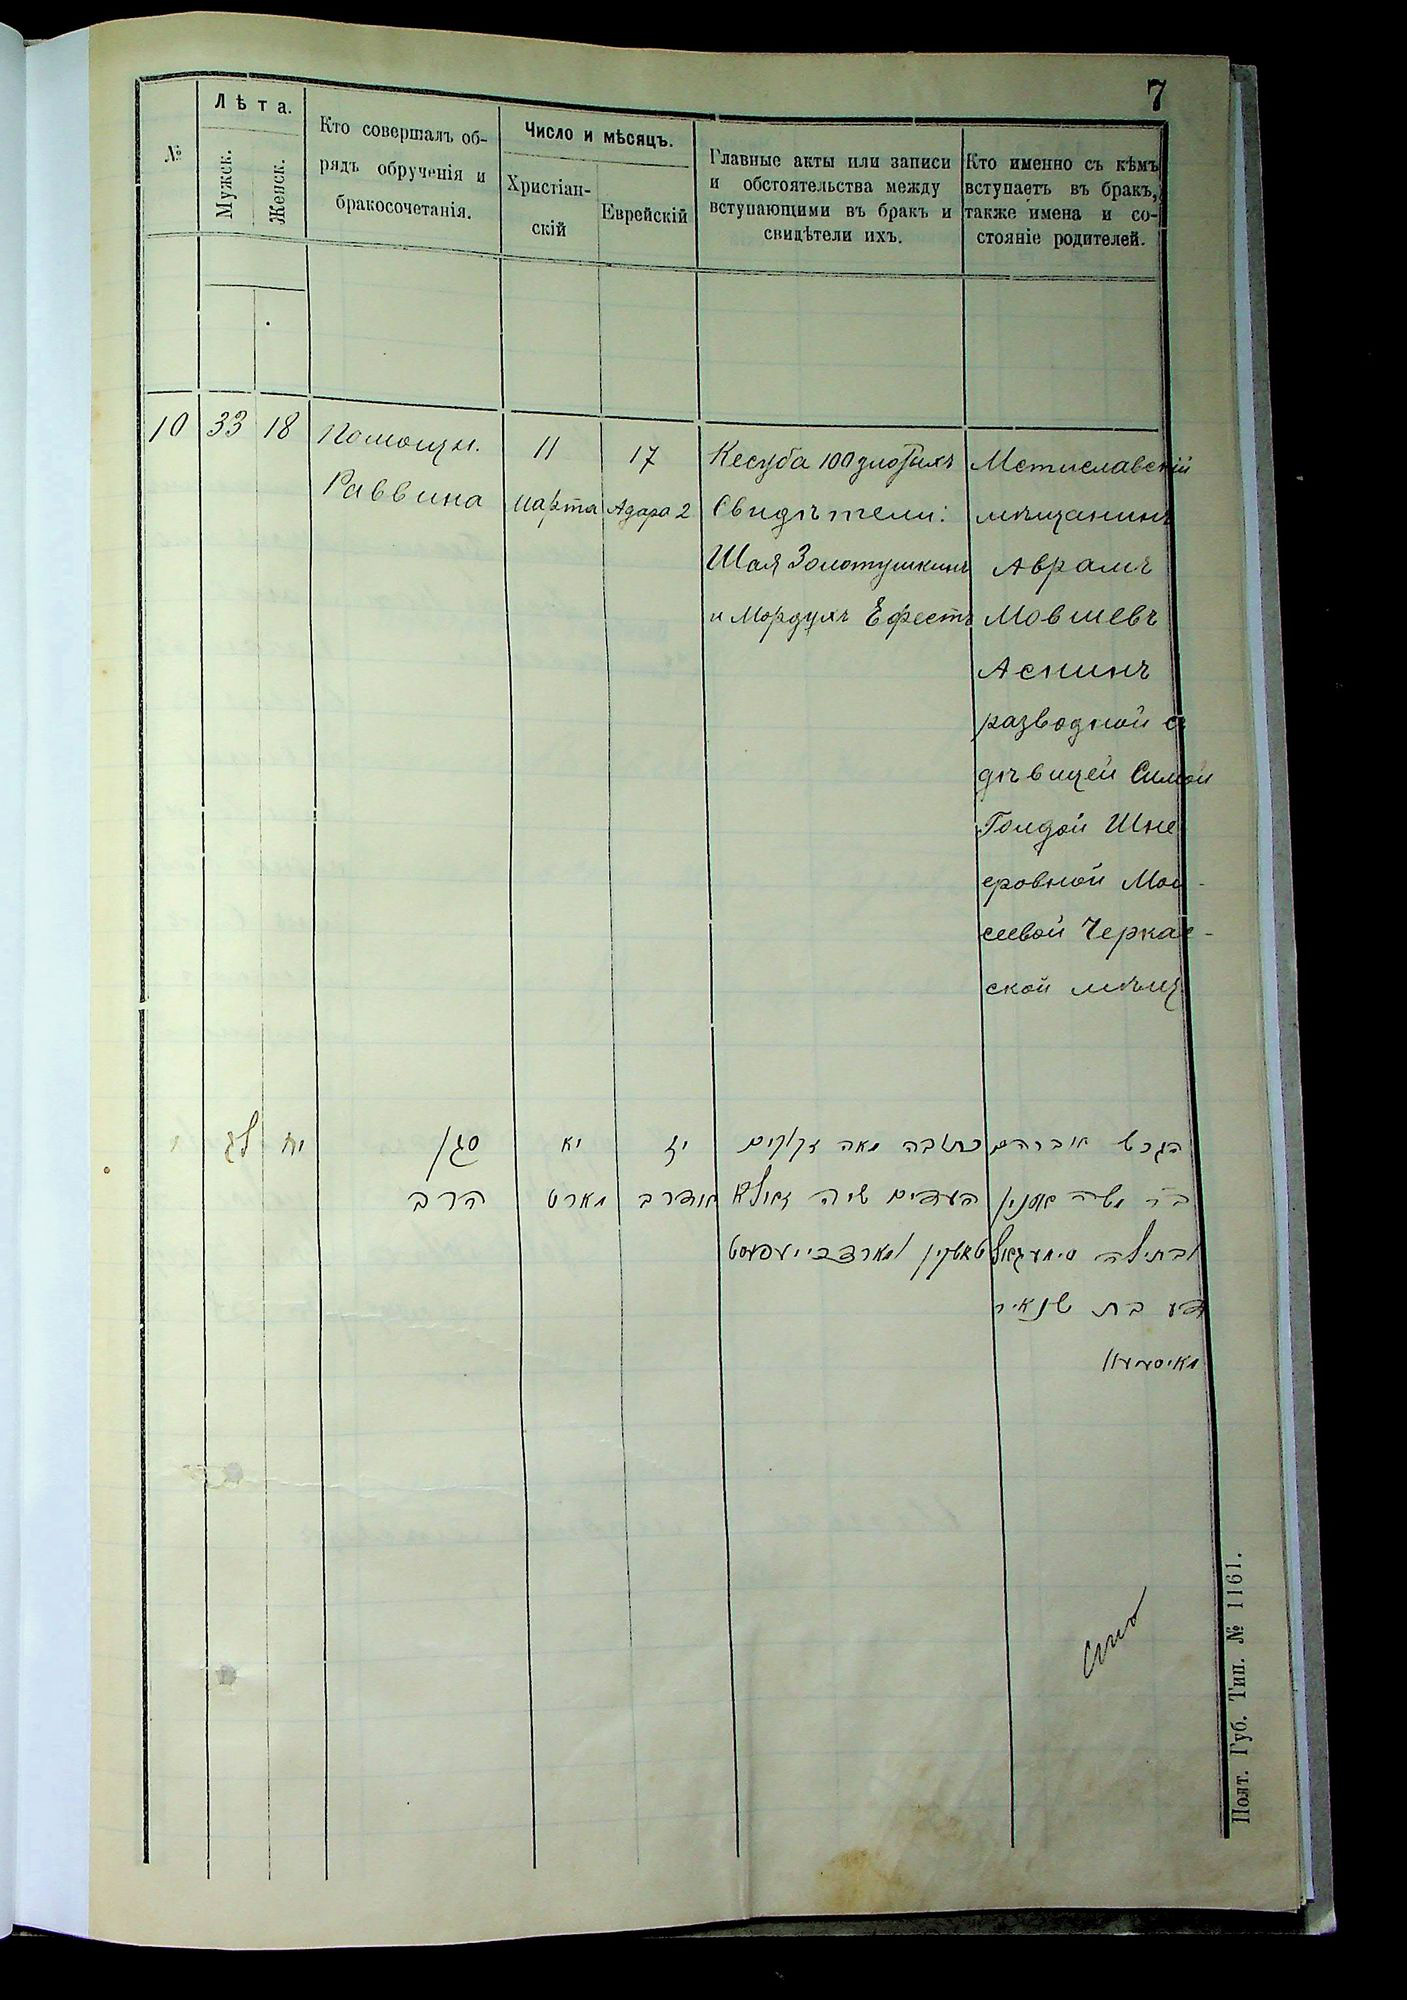 7
№
Лѣта.
Мужск.
Женск.
Кто совершалъ об-
рядъ обрученія и
бракосочетанія.
Число и мѣсяцъ.
Христіан-
скій
Еврейскій
Главные акты или записи
и обстоятельства между
вступающими въ бракъ и
свидѣтели ихъ.
Кто именно съ кѣмъ
вступаетъ въ бракъ,
также имена и со-
стояніе родителей.
10
33
18
Помощн.
Раввина
11
марта
17
Адара 2
Кесуба 100 злотыхъ
Свидѣтели:
Шая Золотушкинъ
и Мордухъ Ефестъ
Мстиславскій
мѣщанинъ
Аврамъ
Мовшевъ
Аснинъ
разводной с
дѣвицей Симой
Голдой Шне
еровной Мои-
сеевой Черкас-
ской мѣщ.
י
לג
יח
סגן
הרב
יא
מארט
יז
אדר ב
כתובה מאה זקוקים
העדים שיה זאלא
טאשקין ומארדכיי עפעסט
הגרש אברהם
בר משה אסנין
ובתולה סימע גאל
דע בת שנאיר
Полт. Губ. Тип. № 1161.